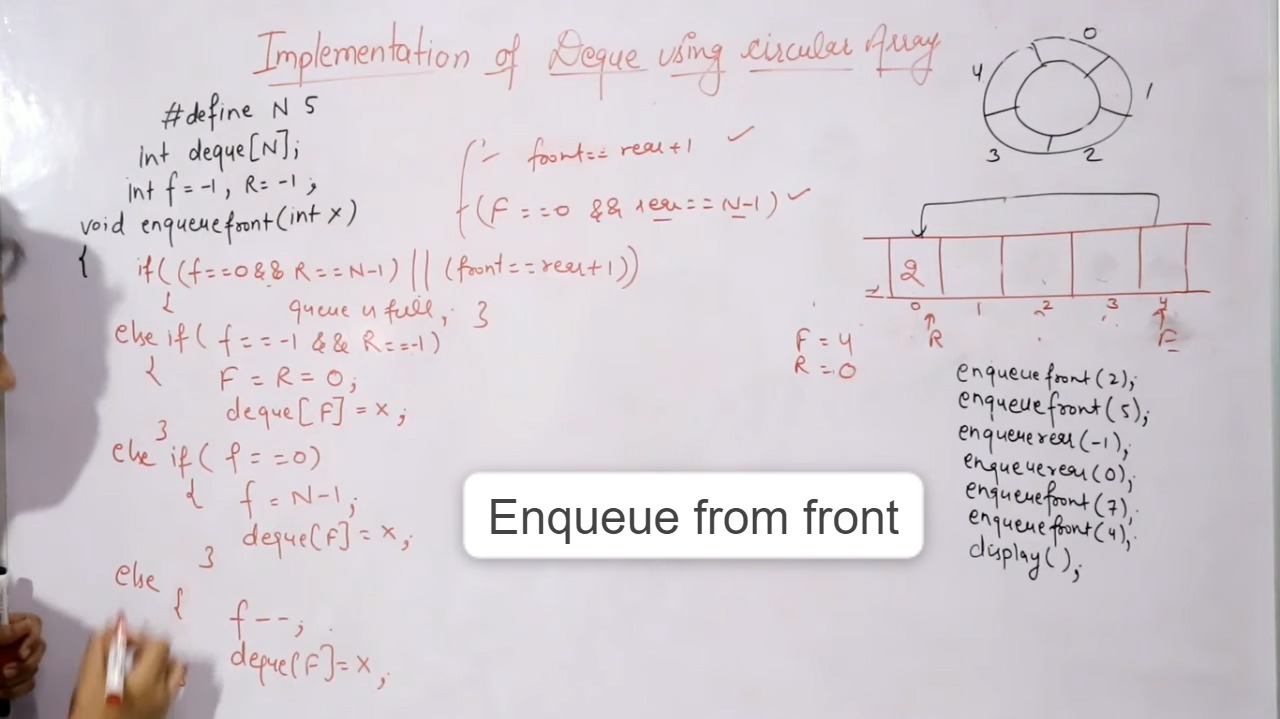 Implementation of Deque using circular Array
#define N 5
int deque[N];
int f=-1, R=-1;
void enqueuefront(int x)
{
if((f==0&& R==N-1) || (front==rear+1))
{ queue is full; }
else if( f==-1 && R==-1)
{ F = R = 0;
deque[F]=x;
}
else if( f==0)
{ f = N-1;
deque[F]=x;
}
else
{ f--;
deque[F]=x;
front== rear+1
(F==0 && rear==N-1)
Enqueue from front
0
1
2
3
4
2
0 1 2 3 4
R F
F = 4
R = 0
enqueuefront(2);
enqueuefront(5);
enqueuerear(-1);
enqueuerear(0);
enqueuefront(7);
enqueuefront(4);
display();